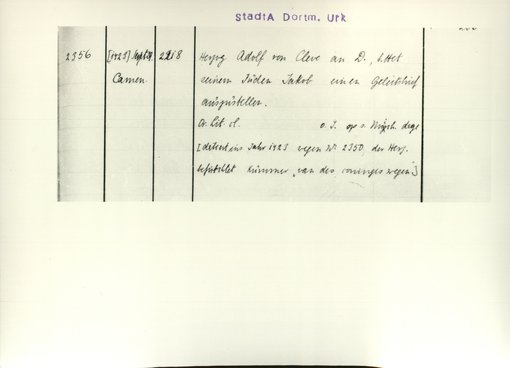 StadtA Dortm. Urk
2356 [1423] Sept. 2218 Herzog Adolf von Cleve an D., bittet
Camen. seinem Juden Jakob einen Geleitbrief
auszustellen.
Or. Lit. cl. o. J. ops. s. Michaelis dage
[datiert ins Jahr 1423 wegen Nr. 2350, der Herz.
befürchtet kummer "van des coninges wegen"]